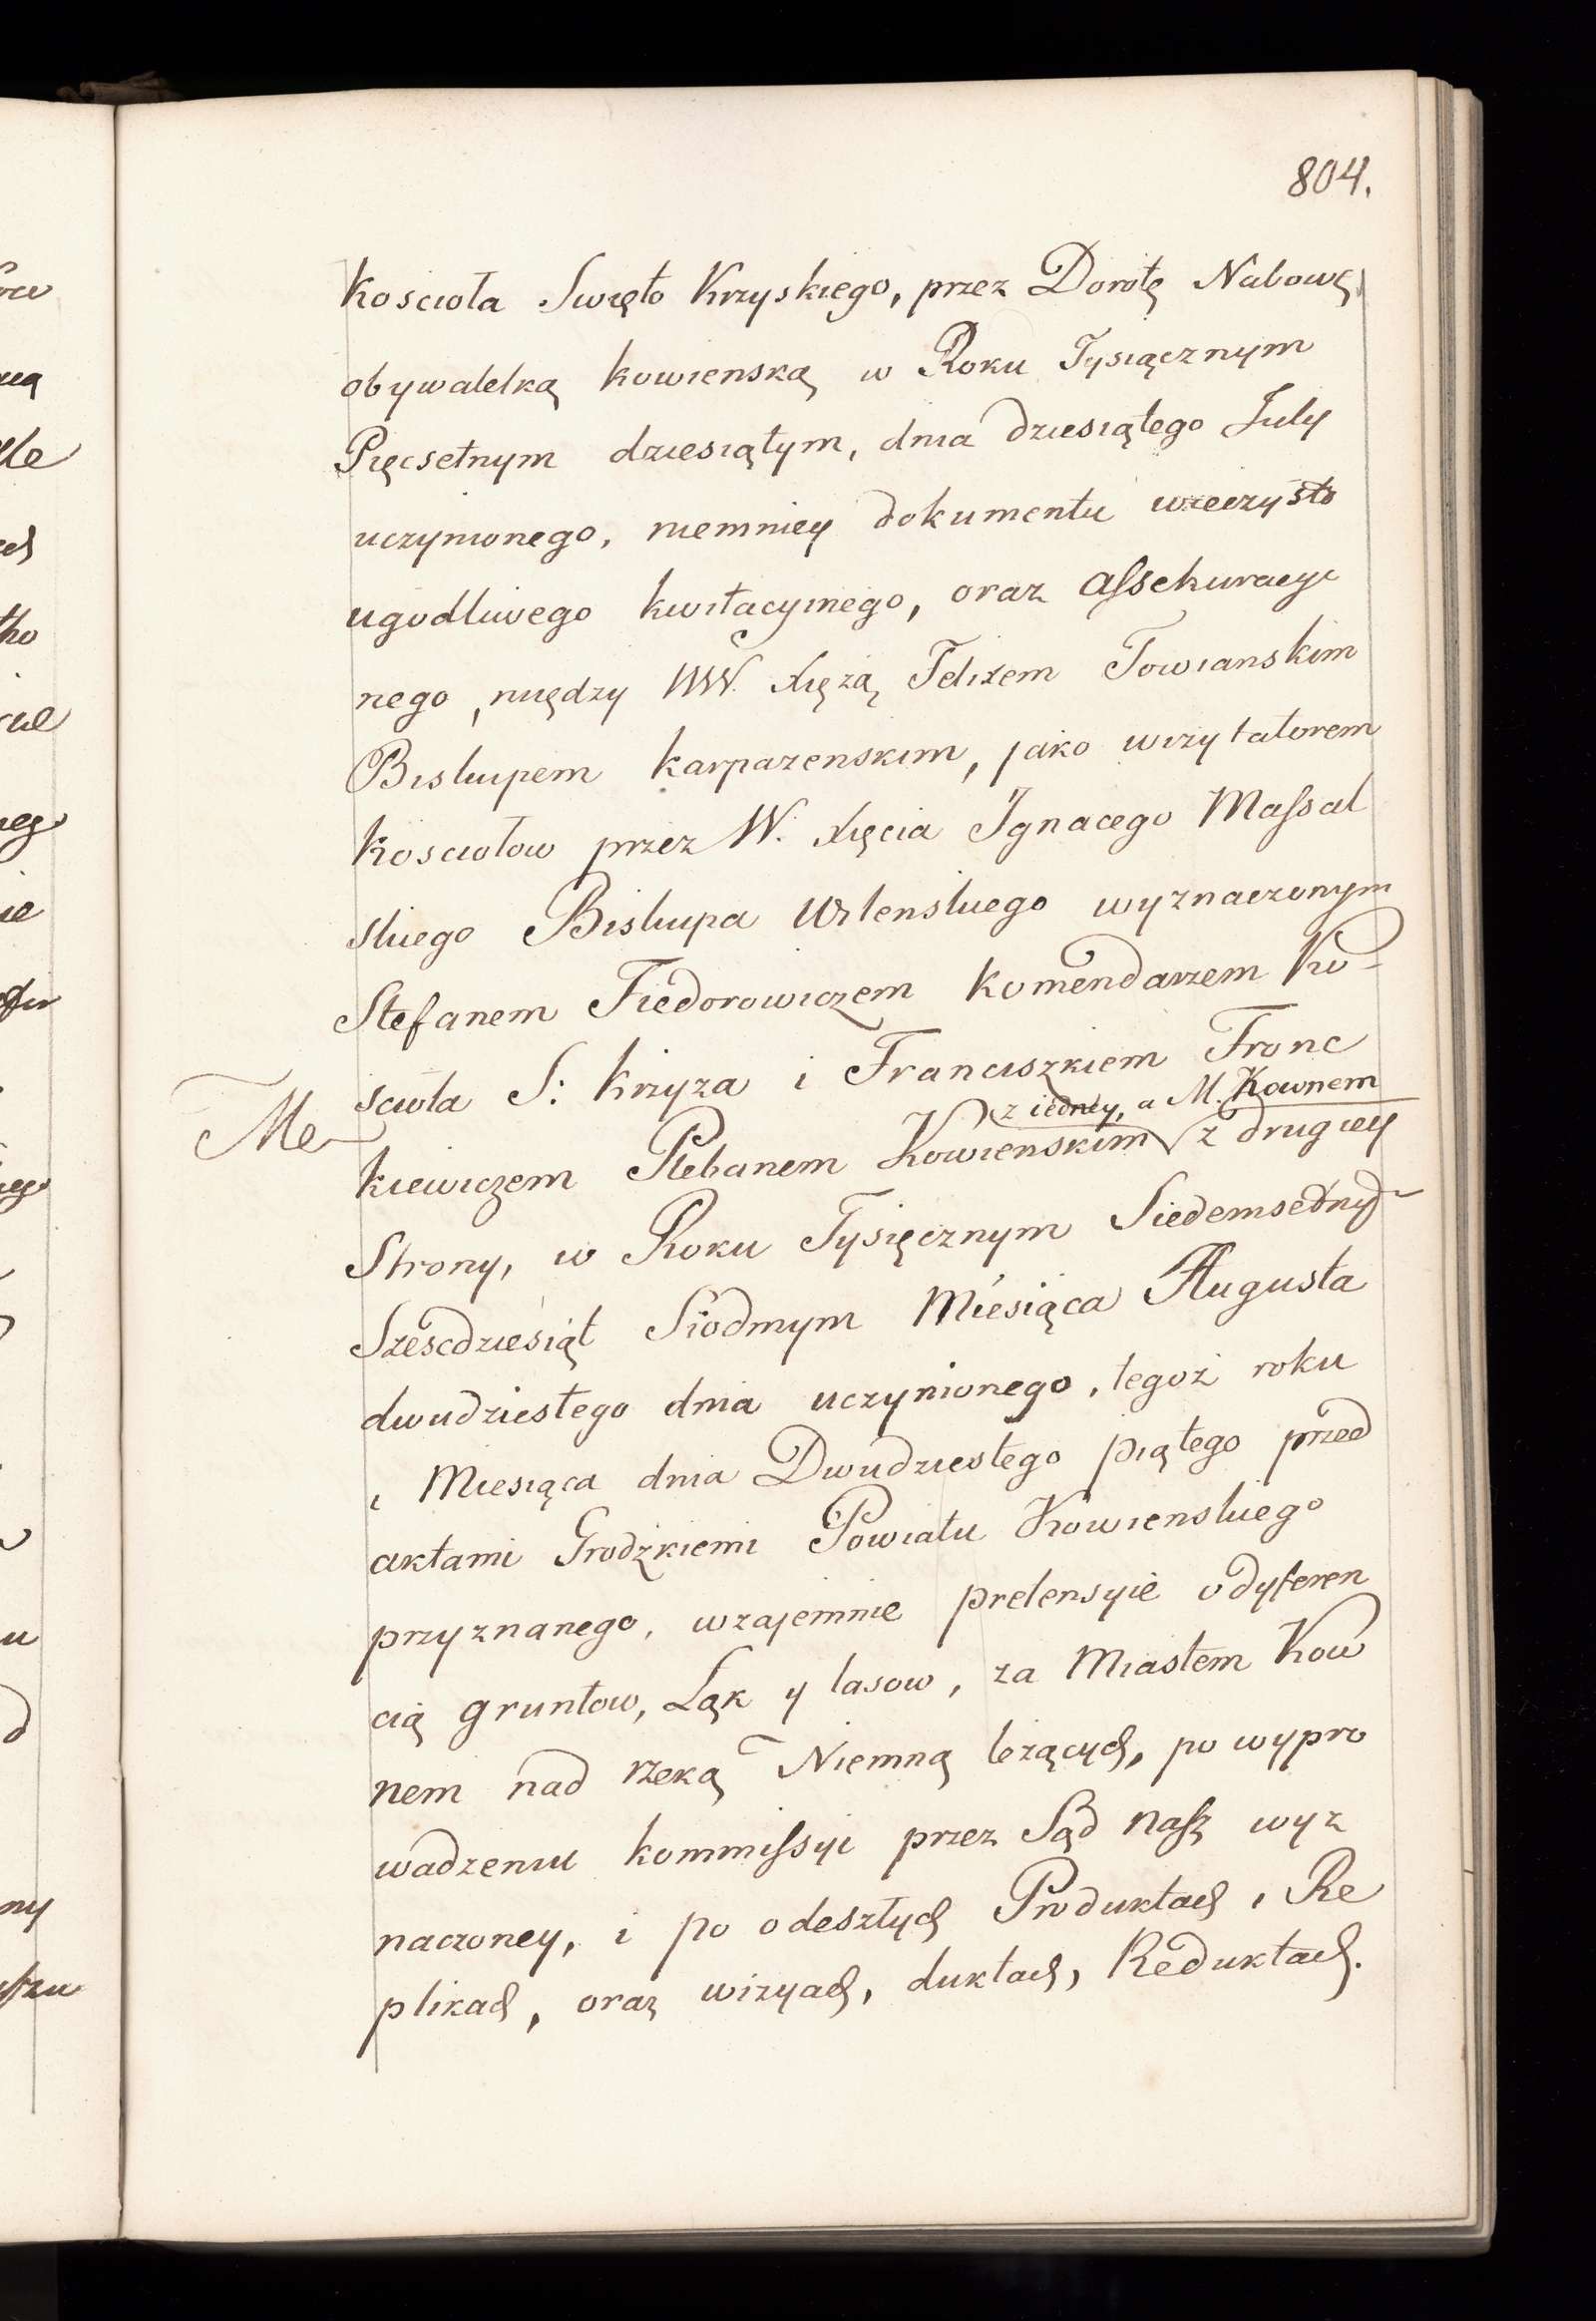 804.
Koscioła Swięto Krzyskiego, przez Dorotę Nabową
obywatelką kowienską w Roku Tysiącznym
Pięcsetnym dziesiątym, dnia dziesiątego July
uczynionego, niemniey dokumentu wieczysto
ugodliwego kwitacyinego, oraz assekuracyi
nego, między WW. Xiężą Felixem Towianskim
Biskupem karpazenskim, jako wizytatorem
Kosciołow przez W. Xięcia Ignacego Massal
skiego Biskupa Wilenskiego wyznaczonym
Stefanem Fiedorowiczem Komendarzem Ko-
scioła S: Krzyza i Franciszkiem Fronc
z iedney, a M. Kownem
Me
kiewiczem Plebanem Kowienskim √ z drugiey
Strony, w Roku Tysięcznym Siedemsetny
Szescdziesiąt Siodmym Miesiąca Augusta
dwudziestego dnia uczynionego, tegoż roku
i Miesiąca dnia Dwudziestego piątego przed
aktami Grodzkiemi Powiatu Kowienskiego
przyznanego, wzajemnie pretensyie o dyferen
cią gruntow, Ląk y lasow, za Miastem Kow
nem nad rzeką Niemną leżących, po wypro
wadzeniu kommissyi przez Sąd nasz wyz
naczoney, i po odeszłych Produktach, Re
plikach, oraz wizyach, duktach, Reduktach.